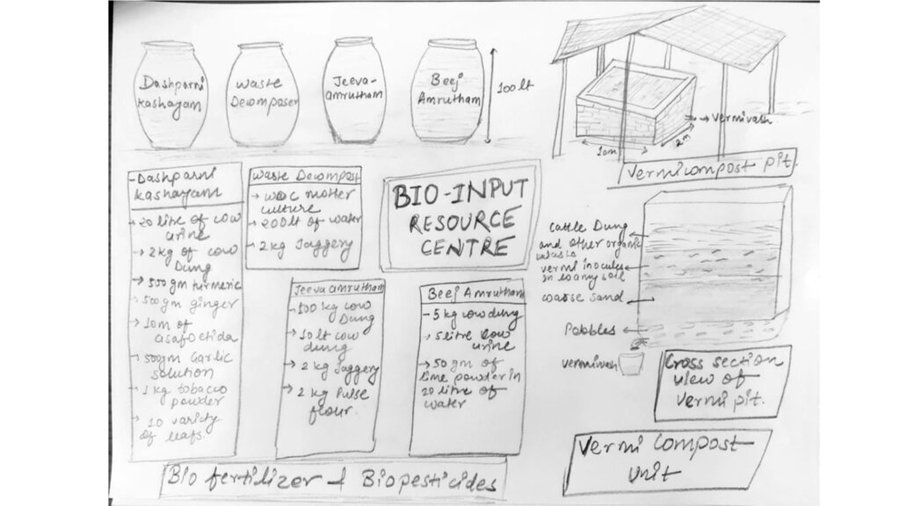 Dashparni
kashayam
waste
Decomposer
Jeeva-
amrutham
Beej
Amrutham
100 lt
vermivash
10m
2m
Vermicompost pit.
-Dashparni
kashayam
→ 20 litre of cow
urine
→ 2kg of cow
Dung
→ 500gm turmeric
→ 500gm ginger
→ 10m of
asafoetida
→ 500gm Garlic
solution
→ 1 kg tobacco
powder
→ 10 variety
of leafs
Waste Decompost
→ WDC motter
culture
→ 200lt of water
→ 2 kg Jaggery
BIO-INPUT
RESOURCE
CENTRE
Jeevaamrutham
kg cow
Dung
lt cow
dung
→ 2 kg Jaggery
→ 2 kg Pulse
flour.
Beej Amrutham
- 5 kg cowdung
→ 5 litre Cow
urine
→ 50 gm of
lime powder in
20 litre of
water
Cattle Dung
and other organic
vermi inocules
in loamy soil
coarse sand
Pebbles
vermivash
Cross section
view of
Vermi pit.
Vermi Compost
unit
Bio fertilizer & Biopesticides